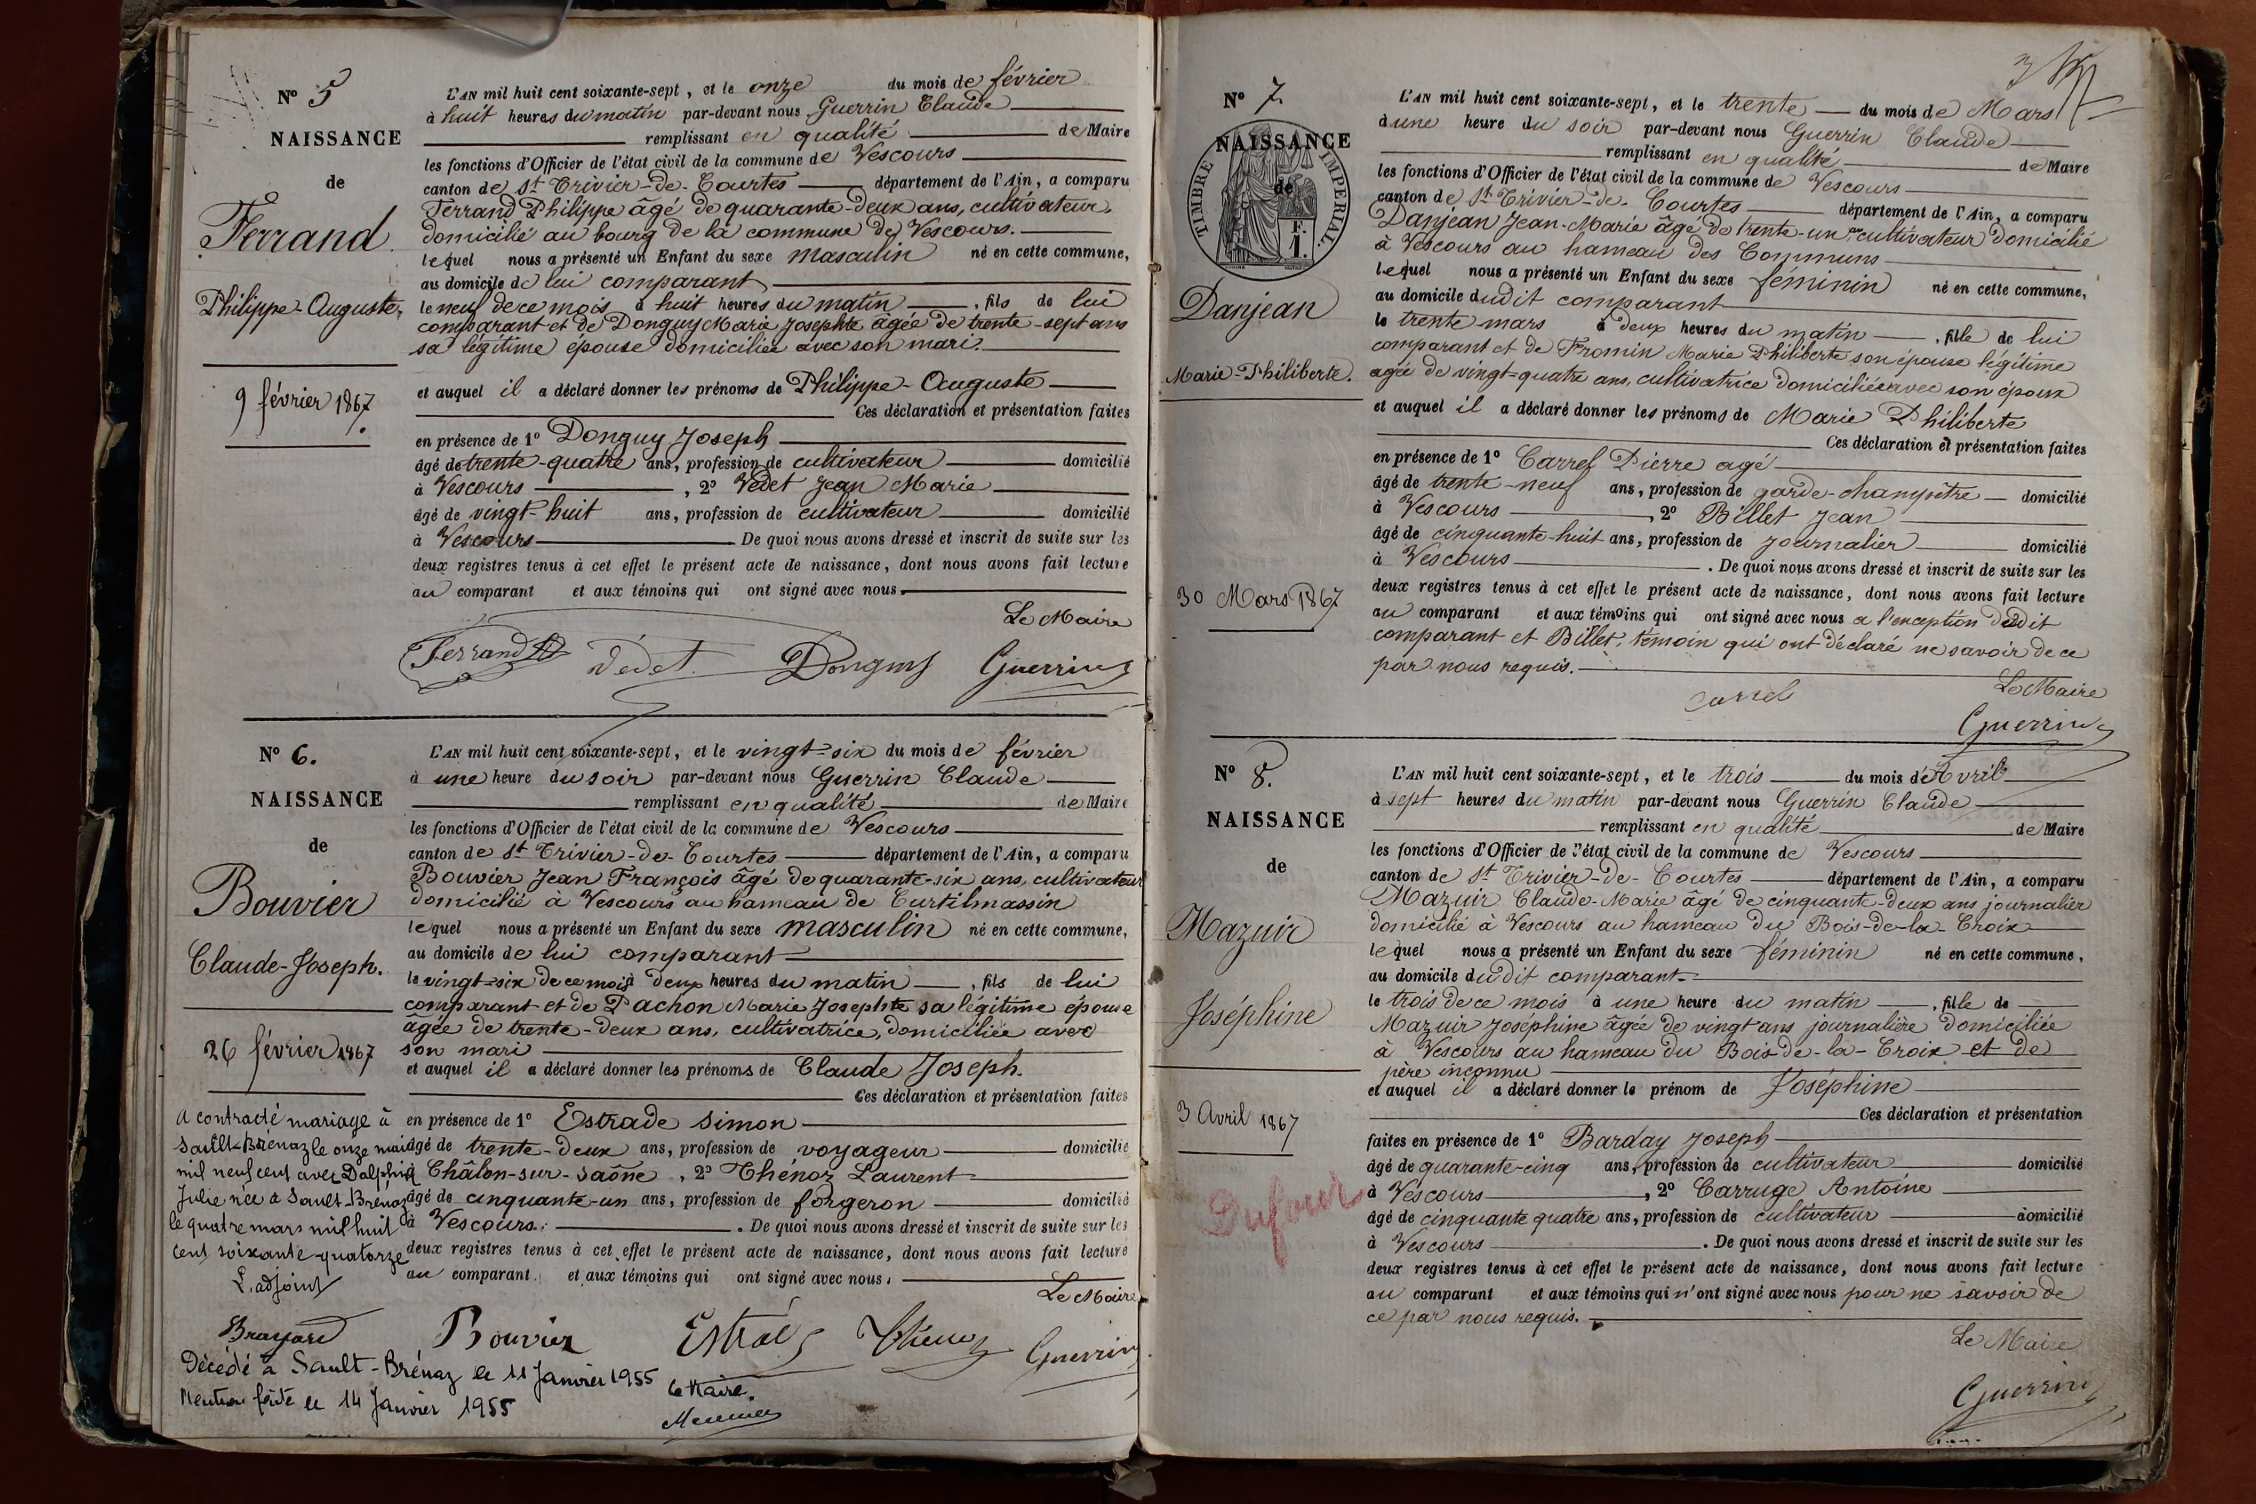 Nº 5
NAISSANCE
de
Ferrand
Philippe-Auguste,
9 février 1867.
L'AN mil huit cent soixante-sept, et le onze du mois de février
à huit heures du matin par-devant nous Guerrin Claude
remplissant en qualité de Maire
les fonctions d'Officier de l'état civil de la commune de Vescours
canton de St Trivier-de-Courtes département de l'Ain, a comparu
Ferrand Philippe âgé de quarante-deux ans, cultivateur,
domicilié au bourg de la commune de Vescours.
lequel nous a présenté un Enfant du sexe masculin né en cette commune,
au domicile de lui comparant
le neuf de ce mois à huit heures du matin, fils de lui
comparant et de Donguy Marie Josephte âgée de trente-sept ans
sa légitime épouse domiciliée avec son mari.
et auquel il a déclaré donner les prénoms de Philippe-Auguste
Ces déclaration et présentation faites
en présence de 1º Donguy Joseph
âgé de trente-quatre ans, profession de cultivateur domicilié
à Vescours, 2º Vedet Jean Marie
âgé de vingt-huit ans, profession de cultivateur domicilié
à Vescours De quoi nous avons dressé et inscrit de suite sur les
deux registres tenus à cet effet le présent acte de naissance, dont nous avons fait lecture
au comparant et aux témoins qui ont signé avec nous.
Le Maire
Ferrand Vedet Donguy Guerrin
Nº 6.
NAISSANCE
de
Bouvier
Claude-Joseph.
26 février 1867
A contracté mariage à
Sault-Brénaz le onze mai
mil neuf cent avec Dalphin
Julie née à Sault-Brénaz
le quatre mars mil huit
cent soixante quatorze
L'adjoint
L'AN mil huit cent soixante-sept, et le vingt-six du mois de février
à une heure du soir par-devant nous Guerrin Claude
remplissant en qualité de Maire
les fonctions d'Officier de l'état civil de la commune de Vescours
canton de St Trivier-de-Courtes département de l'Ain, a comparu
Bouvier Jean François âgé de quarante-six ans, cultivateur
domicilié à Vescours au hameau de Curtilmassin
lequel nous a présenté un Enfant du sexe masculin né en cette commune,
au domicile de lui comparant
le vingt-six de ce mois à deux heures du matin, fils de lui
comparant et de Pachon Marie Josephte sa légitime épouse
âgée de trente-deux ans, cultivatrice, domiciliée avec
son mari
et auquel il a déclaré donner les prénoms de Claude Joseph.
Ces déclaration et présentation faites
en présence de 1º Estrade Simon
âgé de trente-deux ans, profession de voyageur domicilié
à Châlon-sur-Saône, 2º Thénoz Laurent
âgé de cinquante-un ans, profession de forgeron domicilié
à Vescours. De quoi nous avons dressé et inscrit de suite sur les
deux registres tenus à cet effet le présent acte de naissance, dont nous avons fait lecture
au comparant et aux témoins qui ont signé avec nous.
Le Maire
Bouvier Guerrin
Décédé à Sault-Brénaz le 11 Janvier 1955
Mention faite le 14 Janvier 1955
Le Maire.
Nº 7.
NAISSANCE
de
TIMBRE IMPERIAL.
F.
1.
Danjean
Marie-Philiberte.
30 Mars 1867
3
L'AN mil huit cent soixante-sept, et le trente du mois de Mars
à une heure du soir par-devant nous Guerrin Claude
remplissant en qualité de Maire
les fonctions d'Officier de l'état civil de la commune de Vescours
canton de St Trivier-de-Courtes département de l'Ain, a comparu
Danjean Jean-Marie âgé de trente-un ans cultivateur domicilié
à Vescours au hameau des Communs
lequel nous a présenté un Enfant du sexe féminin né en cette commune,
au domicile dudit comparant
le trente mars à deux heures du matin, fille de lui
comparant et de Fromin Marie Philiberte son épouse légitime
agée de vingt-quatre ans, cultivatrice domiciliée avec son époux
et auquel il a déclaré donner les prénoms de Marie Philiberte
Ces déclaration et présentation faites
en présence de 1º Carrel Pierre agé
âgé de trente-neuf ans, profession de garde-champêtre domicilié
à Vescours, 2º Billet Jean
âgé de cinquante-huit ans, profession de journalier domicilié
à Vescours. De quoi nous avons dressé et inscrit de suite sur les
deux registres tenus à cet effet le présent acte de naissance, dont nous avons fait lecture
au comparant et aux témoins qui ont signé avec nous a l'exception dudit
comparant et Billet, témoin qui ont déclaré ne savoir de ce
par nous requis.
Le Maire
Carrel Guerrin
Nº 8.
NAISSANCE
de
Mazuir
Joséphine
3 Avril 1867
Dufour
L'AN mil huit cent soixante-sept, et le trois du mois d'Avril
à sept heures du matin par-devant nous Guerrin Claude
remplissant en qualité de Maire
les fonctions d'Officier de l'état civil de la commune de Vescours
canton de St Trivier-de-Courtes département de l'Ain, a comparu
Mazuir Claude-Marie âgé de cinquante-deux ans journalier
domicilié à Vescours au hameau du Bois-de-la-Croix
lequel nous a présenté un Enfant du sexe féminin né en cette commune,
au domicile dudit comparant
le trois de ce mois à une heure du matin, fille de
Mazuir Joséphine âgée de vingt ans journalière domiciliée
à Vescours au hameau du Bois-de-la-Croix et de
père inconnu
et auquel il a déclaré donner le prénom de Joséphine
Ces déclaration et présentation
faites en présence de 1º Barday Joseph
âgé de quarante-cinq ans, profession de cultivateur domicilié
à Vescours, 2º Carruge Antoine
âgé de cinquante quatre ans, profession de cultivateur domicilié
à Vescours. De quoi nous avons dressé et inscrit de suite sur les
deux registres tenus à cet effet le présent acte de naissance, dont nous avons fait lecture
au comparant et aux témoins qui n'ont signé avec nous pour ne savoir de
ce par nous requis.
Le Maire
Guerrin